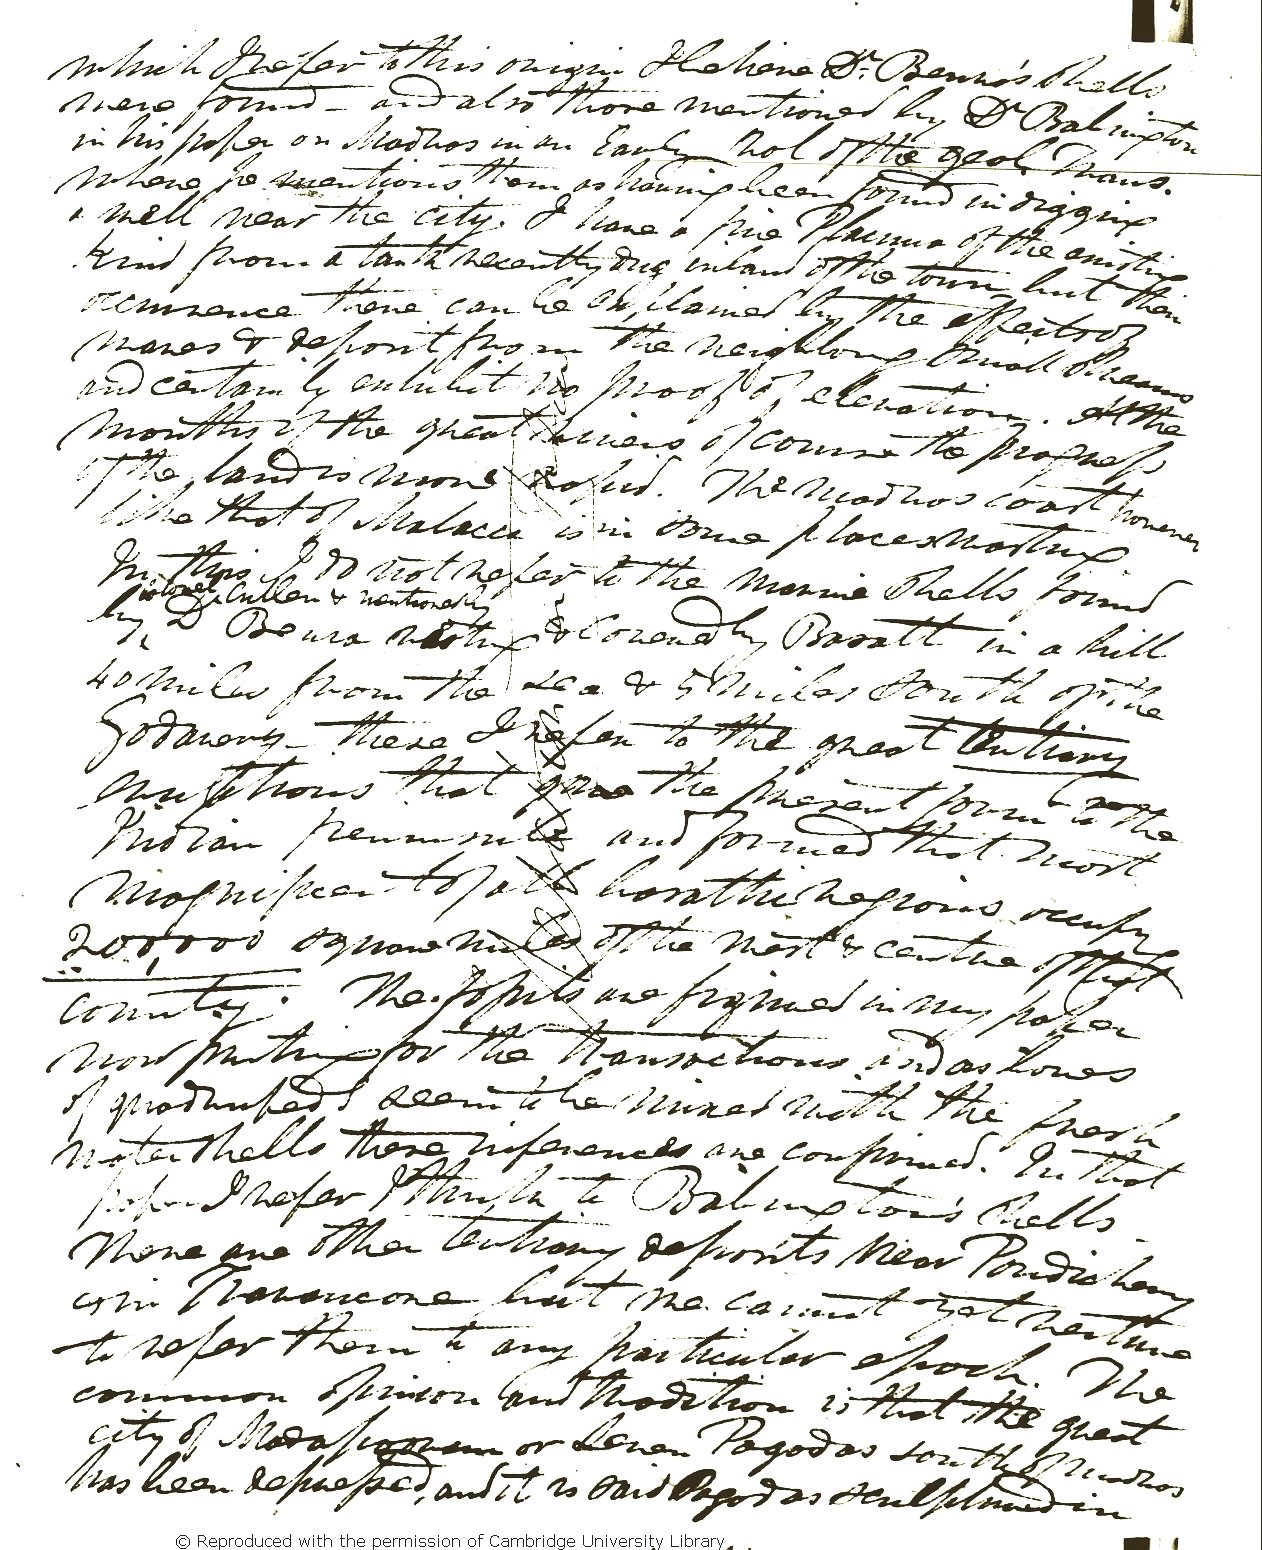 which I refer to this origin I believe Dr. Benza's shells
were found – and also those mentioned by Dr Babington
in his paper on Madras in an Early Vol of the geol. Trans.
where he mentions them as having been found in digging
a well near the city. I have a fine Placuna of the existing
kind from a tank recently dug inland of the town, but their
occurrence there can be explained by the effects of
waves & deposit from the neighbg small streams
and certainly exhibit no proof of elevation. At the
mouths of the great rivers of course the progress
of the land is more rapid. The Madras coast however
like that of Malacca is in some places wasting
In this I do not refer to the marine shells found
Colonel Cullen & mentioned by
by Dr Benza resting & covered by Basalt in a hill
40 miles from the sea & 5 miles South of the
Godavery – these I refer to the great tertiary
eruptions that gave the present form to the
Indian peninsula and formed that most
magnificent of all basaltic regions occupy
200,000 square miles of the West & centre of that
country. The fossils are figured in my paper
now printing for the Transactions and as bones
of quadrupeds seem to be mixed with the fresh
water shells these inferences are confirmed. In that
paper I refer I think to Babington's shells
There are other tertiary deposits near Pondicherry
& in Travancore but we cannot yet venture
to refer them to any particular epoch. The
common opinion and tradition is that the great
city of or Seven Pagodas south of Madras
has been depressed, and it is said Pagodas sculptured in
© Reproduced with the permission of Cambridge University Library